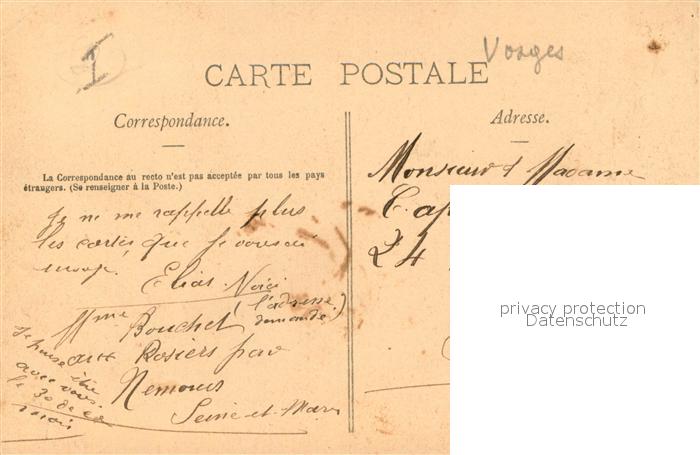 I
Vosges
CARTE POSTALE
Correspondance.
La Correspondance au recto n'est pas acceptée par tous les pays
étrangers. (Se renseigner à la Poste.)
Je ne me rappelle plus
les cartes que je vous ai
Elias Voici
(l'adresse
demandé.)
Mme Bouchet
aux Rosiers par
Nemours
Seine-et-Mar
Je pense être
avec vous
le 30 de ce
mois
Adresse.
Monsieur & Madame
Cap
24
privacy protection
Datenschutz